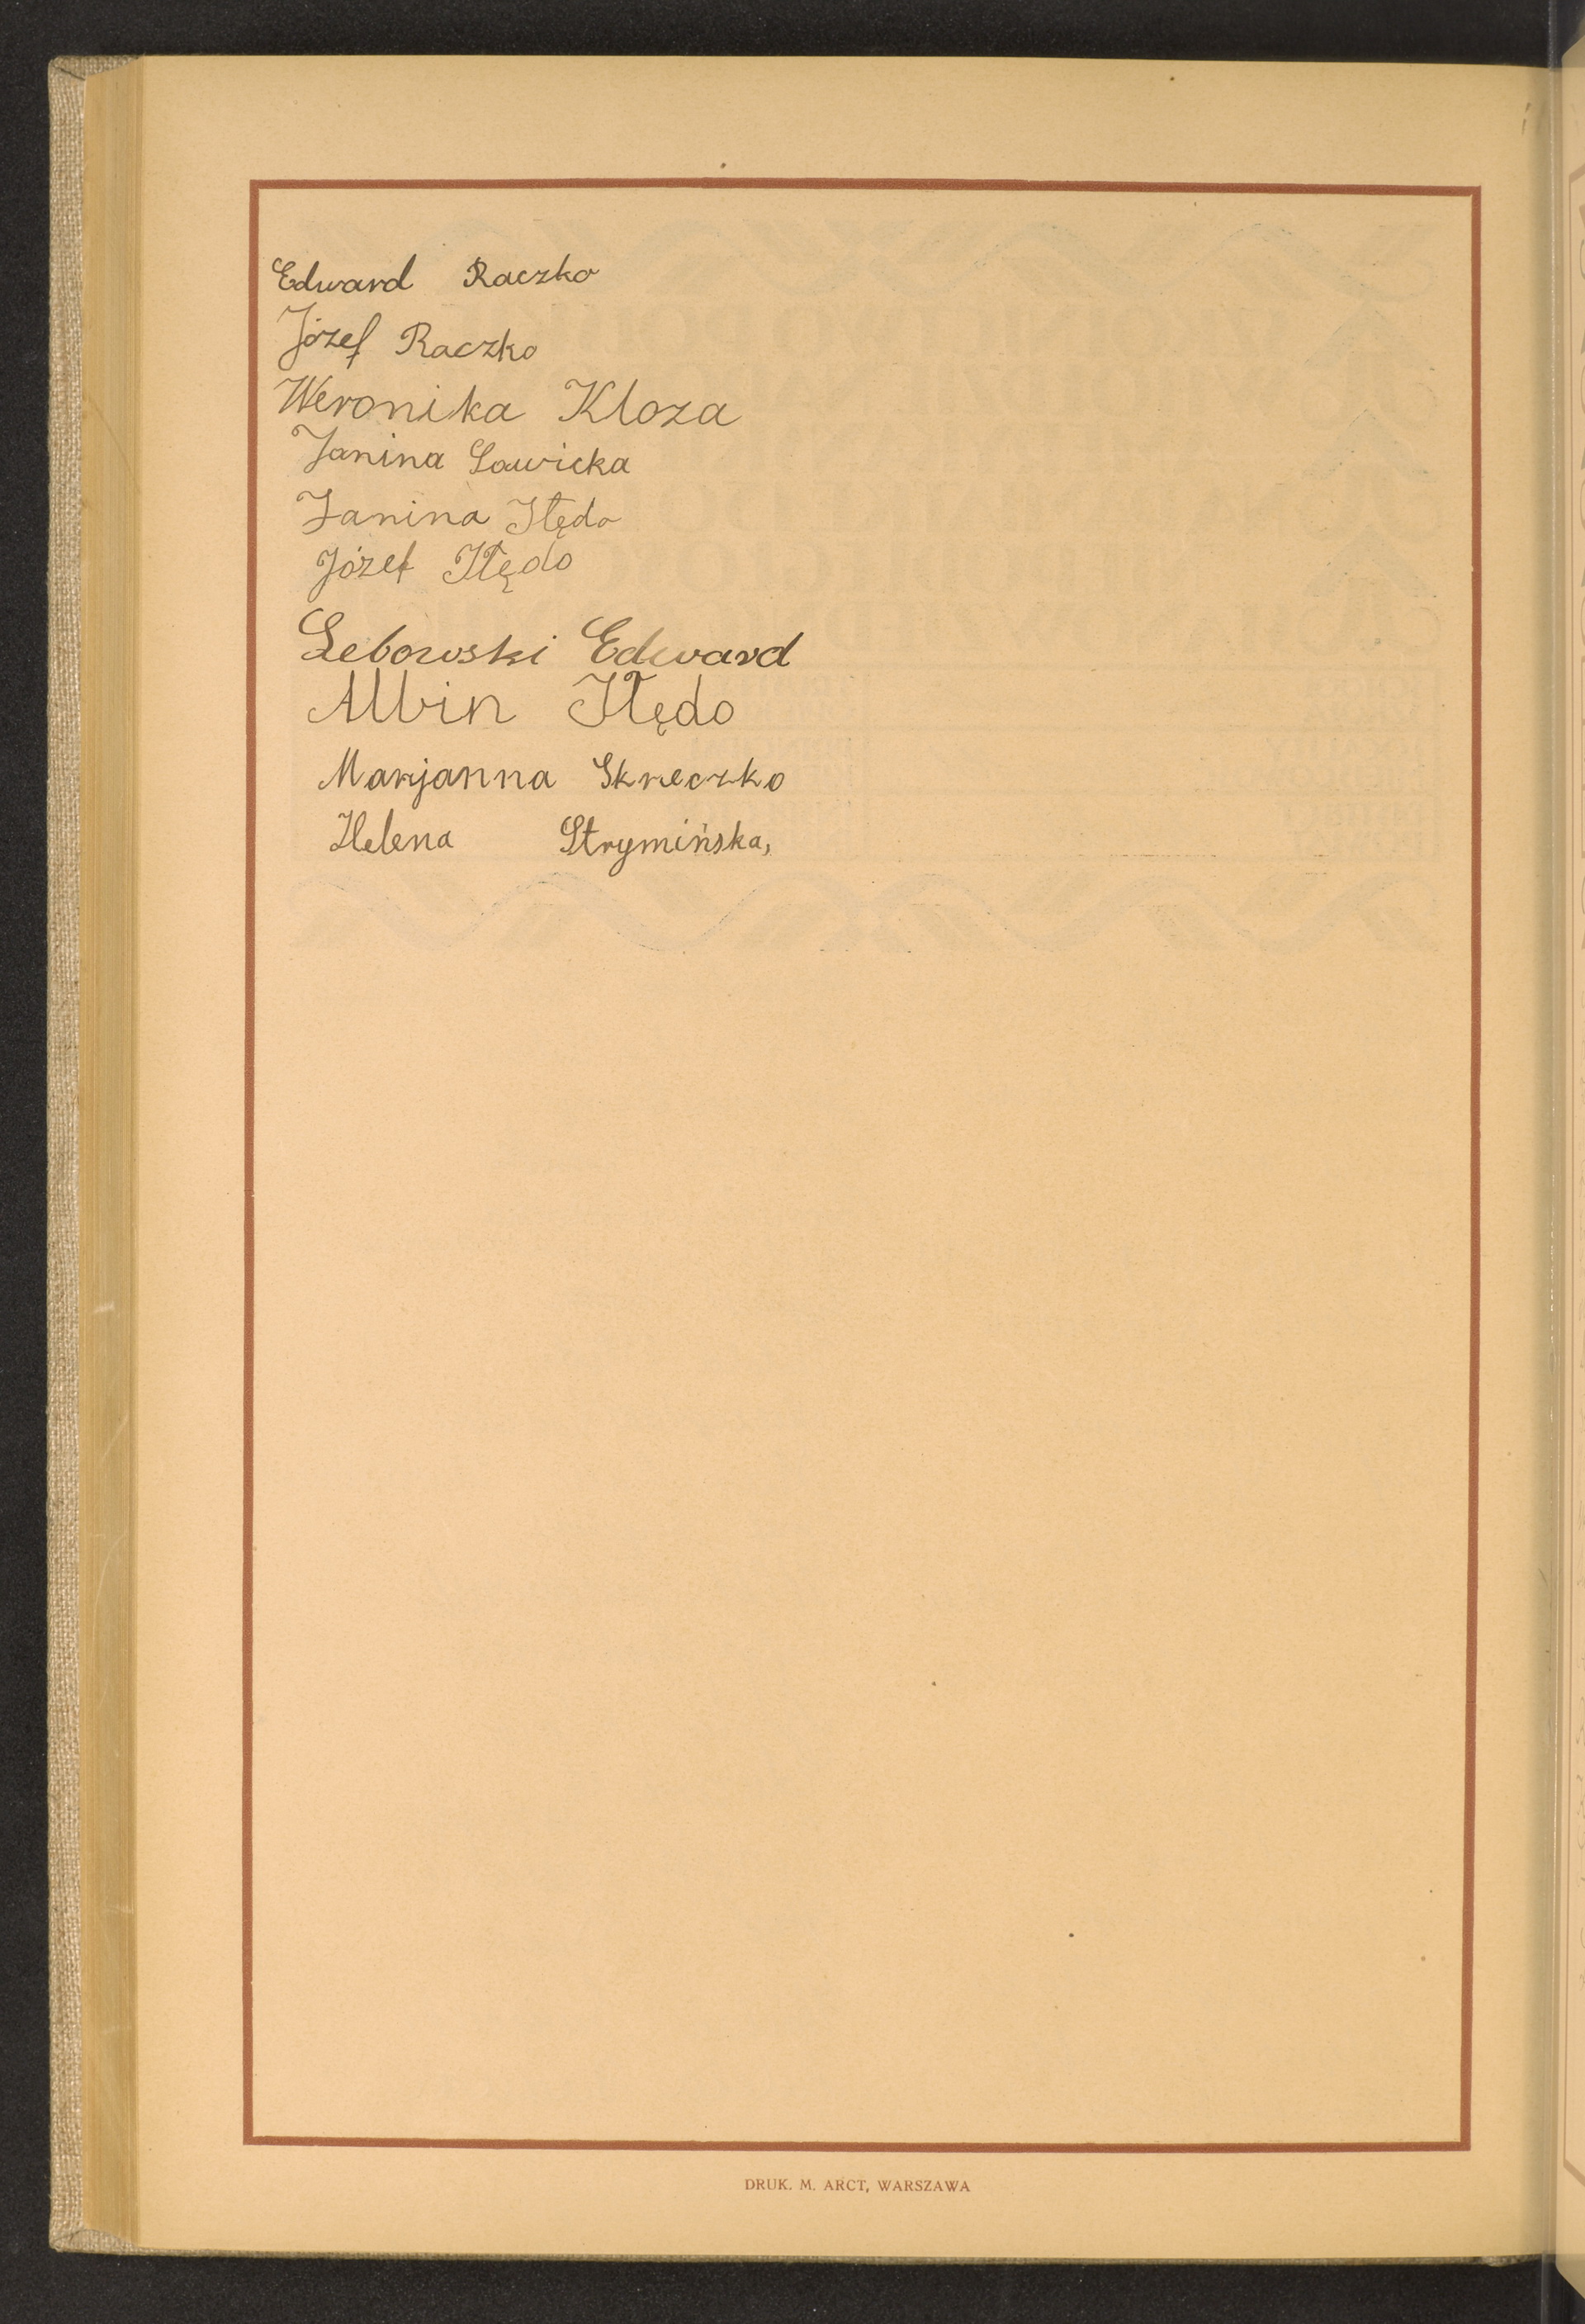 Edward Raczko
Józef Raczko
Weronika Kloza
Janina Sawicka
Janina Hędo
Józef Hędo
Lebowski Edward
Albin Hędo
Marjanna Skreczko
Helena Strymińska,
DRUK. M. ARCT, WARSZAWA